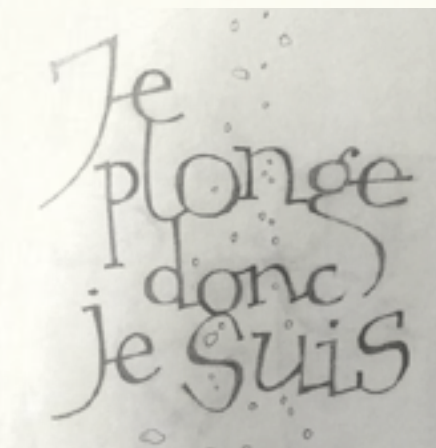 Je
plonge
donc
je suis